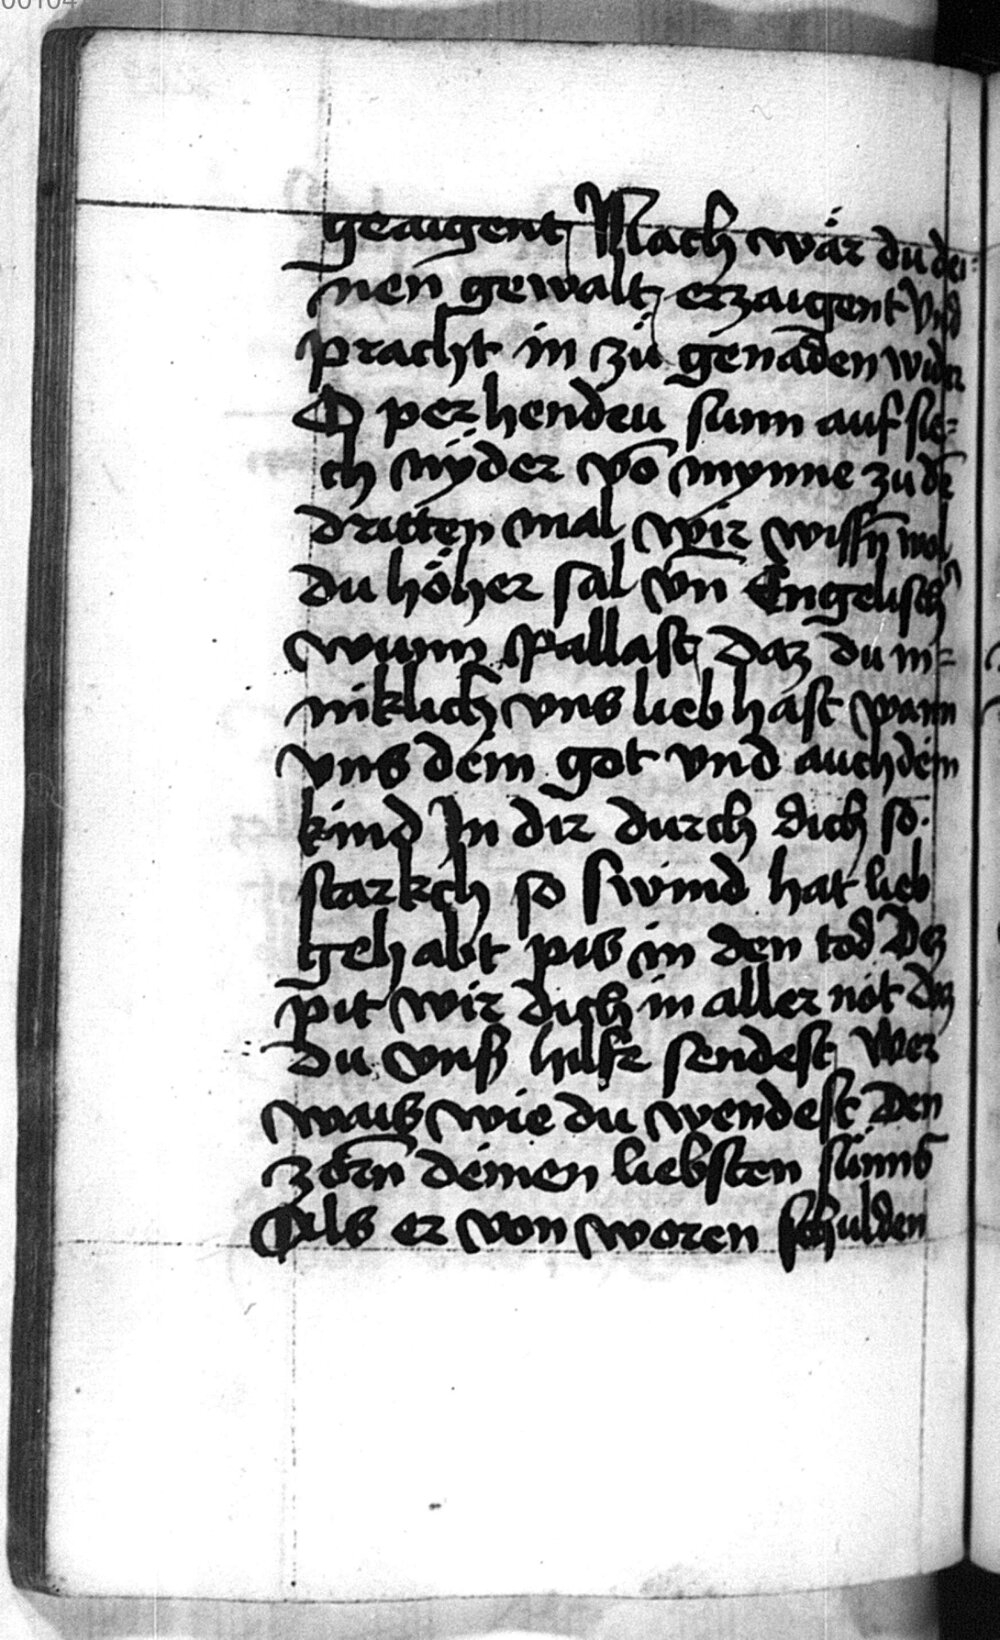 00104
geaigent Nach wár du dei⸗
nen gewalt erzaigent Vnd
pracht in zü genaden wider
O perhendeu sunn auf sie⸗
ch nÿder vō mynne zu dē
dritten mal wir wissn̄ wol
du höher sal vn̄ Engelisch
wunn Pallast daz du in⸗
niklich vns lieb hast wann
vns dem got vnd auch dein
kind In dir durch dich so
starkch so swind hat lieb
gehabt pis in den tod Dez
pit wir dich in aller not daz
du vnß hilfe sendest Wer
wais wie du wendest Den
zorn deinen liebsten sünns
Als er von woren schulden